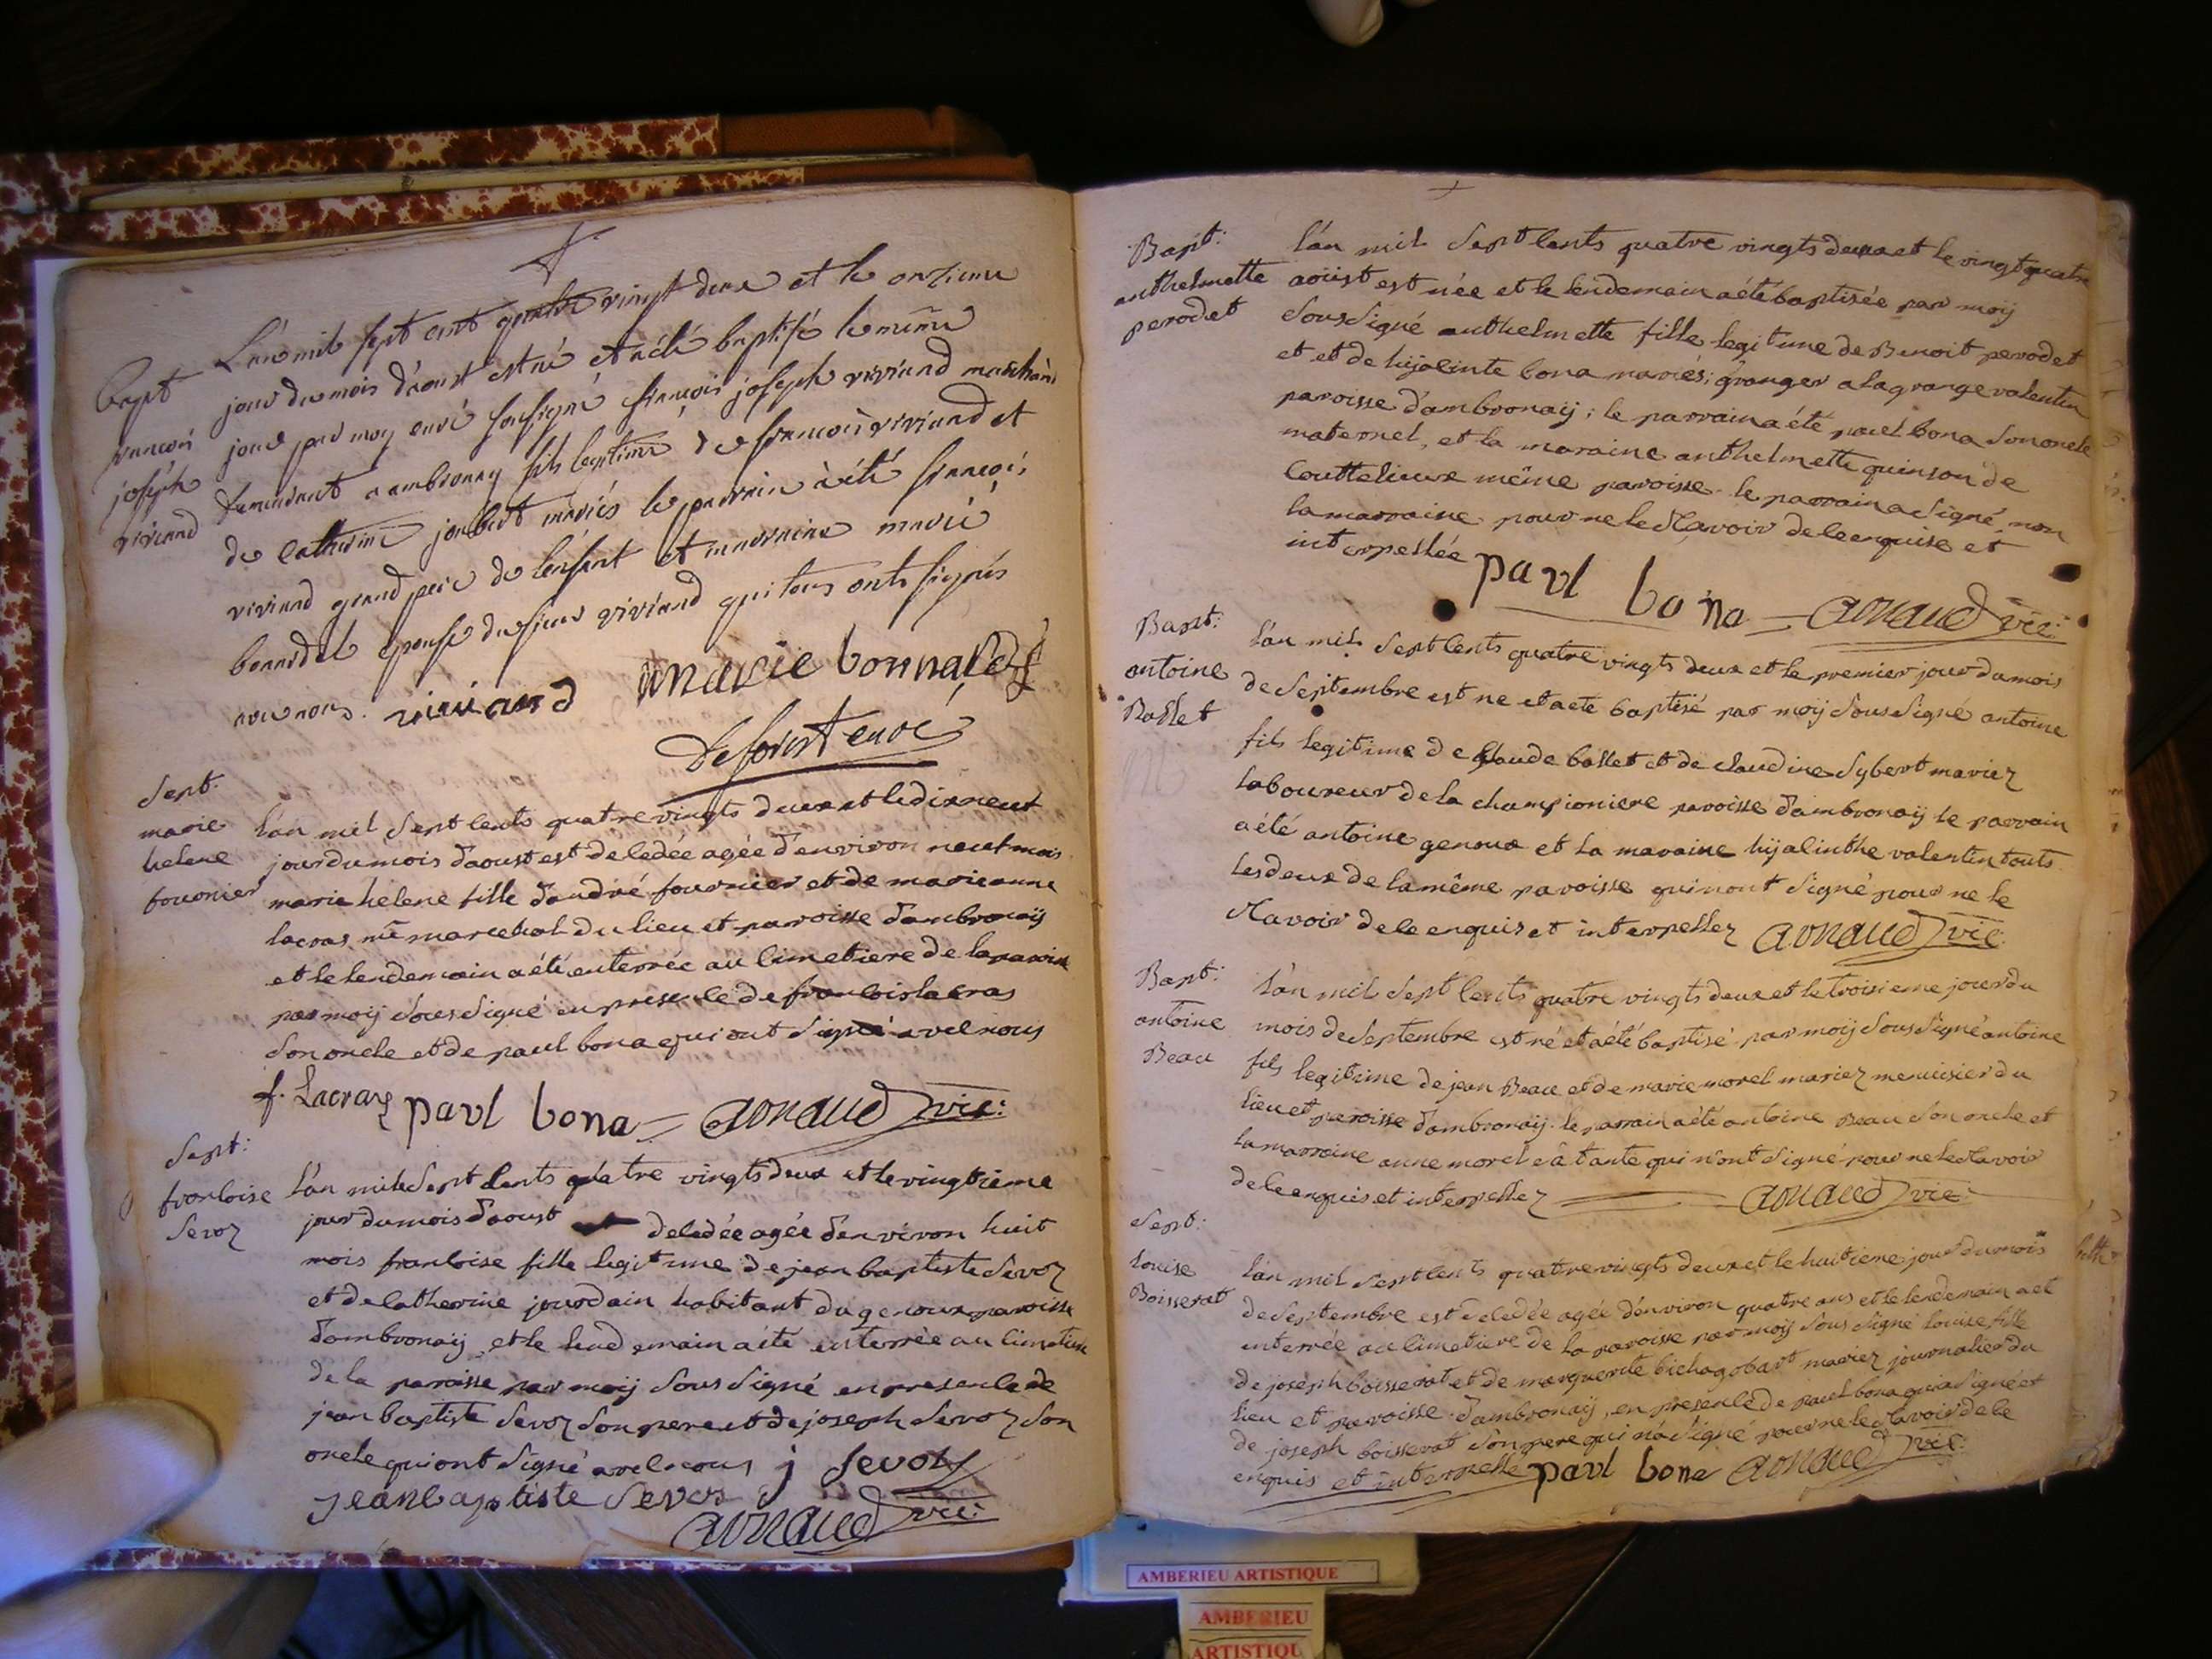 Bapt
francois
joseph
viviand
L'an mil sept cent quatre vingt deux et le onzieme
jour du mois d'aoust est né et a été baptisé le même
jour par moy curé soussigné francois joseph viviand marchand
demeurant a ambronay fils legitime de francois viviand et
de catherine joubert mariés le parrain à été francois
viviand grand pere de l'enfant et marraine marie
bonardel epouse du sieur viviand qui tous onts signés
avec nous. viviand marie bonnardel
Deforest curé
Sept:
marie
helene
fournier
L'an mil Sept cents quatre vingts deux et le dixneuf
jour du mois d'aoust est decedée agée d'environ neuf mois
marie helene fille d'andré fournier et de marieanne
lacras me marechal du lieu et paroisse d'ambronaÿ
et le lendemain a été enterrée au cimetiere de la paroisse
par moÿ Sous Signé en presence de francois lacras
Son oncle et de paul bona qui ont Signé avec nous
f. Lacras paul bona arnaud vic:
Sept:
francoise
Sevoz
L'an mil Sept Cents quatre vingts deux et le vingtieme
jour du mois d'aoust decedée agée d'environ huit
mois francoise fille legitime de jean baptiste Sevoz
et de catherine jourdain habitant du genoux paroisse
d'ambronaÿ, et le lendemain a été enterrée au cimetiere
de la paroisse par moÿ Sous Signé en presence de
jean baptiste Sevoz Son pere et de joseph Sevoz Son
oncle qui ont Signé avec nous j Sevoz
jean baptiste Sevos
arnaud vic:
Bapt:
anthelmette
perodet
L'an mil Sept Cents quatre vingts deux et le vingt quatre
aoüst est née et le lendemain a été baptisée par moÿ
Sous Signé anthelmette fille legitime de Benoit perodet
et et de hijacinte bona mariés; granger a la grange valentin
paroisse d'ambronaÿ; le parrain a été paul bona Son oncle
maternel, et la maraine anthelmette quinson de
Couttelieux même paroisse. le parrain a Signé, non
la marraine pour ne le Scavoir de ce enquise et
interpellée paul bona arnaud vic:
Bapt:
antoine
Ballet
L'an mil Sept Cents quatre vingts deux et le premier jour du mois
de Septembre est né et a été baptisé par moÿ Sous Signé antoine
fils legitime de Claude ballet et de claudine Sybert mariez
laboureur de la championiere paroisse d'ambronaÿ le parrain
a été antoine genoux et la maraine hijacinthe valentin touts
Les deux de la même paroisse qui n'ont Signé pour ne le
Scavoir de ce enquis et interpellez arnaud vic:
Bapt:
antoine
Beau
L'an mil Sept Cents quatre vingts deux et le troisieme jour du
mois de Septembre est né et a été baptisé par moÿ Sous Signé antoine
fils legitime de jean Beau et de marie morel mariez menuisier du
lieu et paroisse d'ambronaÿ. le parrain a été antoine Beau Son oncle et
la marraine anne morel Sa tante qui n'ont Signé pour ne le Scavoir
de ce enquis et interpellez arnaud vic:
Sept:
Louise
Boisserat
L'an mil Sept Cents quatre vingts deux et le huitieme jour du mois
de Septembre est decedée agée d'environ quatre ans et le lendemain a été
enterrée au cimetiere de la paroisse par moÿ Sous Signé Louise fille
de joseph boisserat et de marguerite mariez journalier du
lieu et paroisse d'ambronaÿ, en presence de paul bona qui a Signé et
de joseph boisserat Son pere qui n'a Signé pour ne le Scavoir de ce
enquis et interpellé paul bona arnaud vic:
AMBERIEU ARTISTIQUE
AMBERIEU
ARTISTIQU